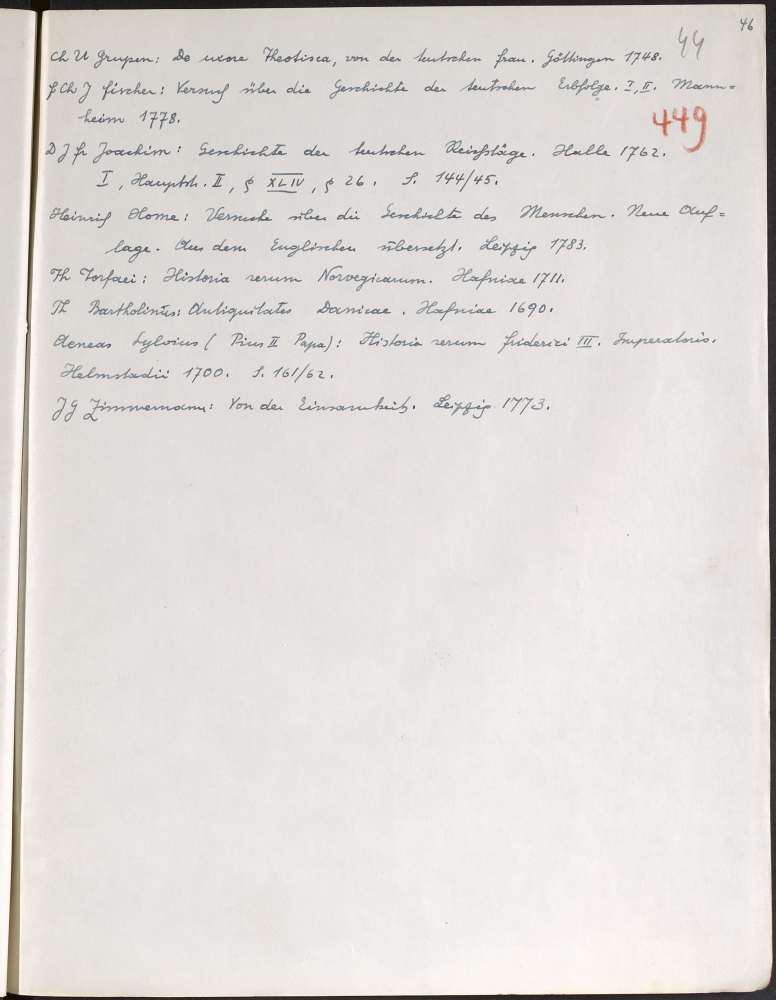 46
44
Ch U Grupen: De uxore Theotisca, von der teutschen Frau. Göttingen 1748.
F Ch J Fischer: Versuch über die Geschichte der teutschen Erbfolge. I, II. Mann=
heim 1778.
449
D J Fr Joachim: Geschichte der teutschen Reichstäge. Halle 1762.
I, Hauptst. II, § XLIV, § 26. S. 144/45.
Heinrich Home: Versuche über die Geschichte des Menschen. Neue Auf=
lage. Aus dem Englischen übersetzt. Leipzig 1783.
Th Torfaei: Historia rerum Norvegicarum. Hafniae 1711.
Th Bartholinus: Antiquitates Danicae. Hafniae 1690.
Aeneas Sylvius (Pius II Papa): Historia rerum Friderici III. Imperatoris.
Helmstadii 1700. S. 161/62.
J G Zimmermann: Von der Einsamkeit. Leipzig 1773.